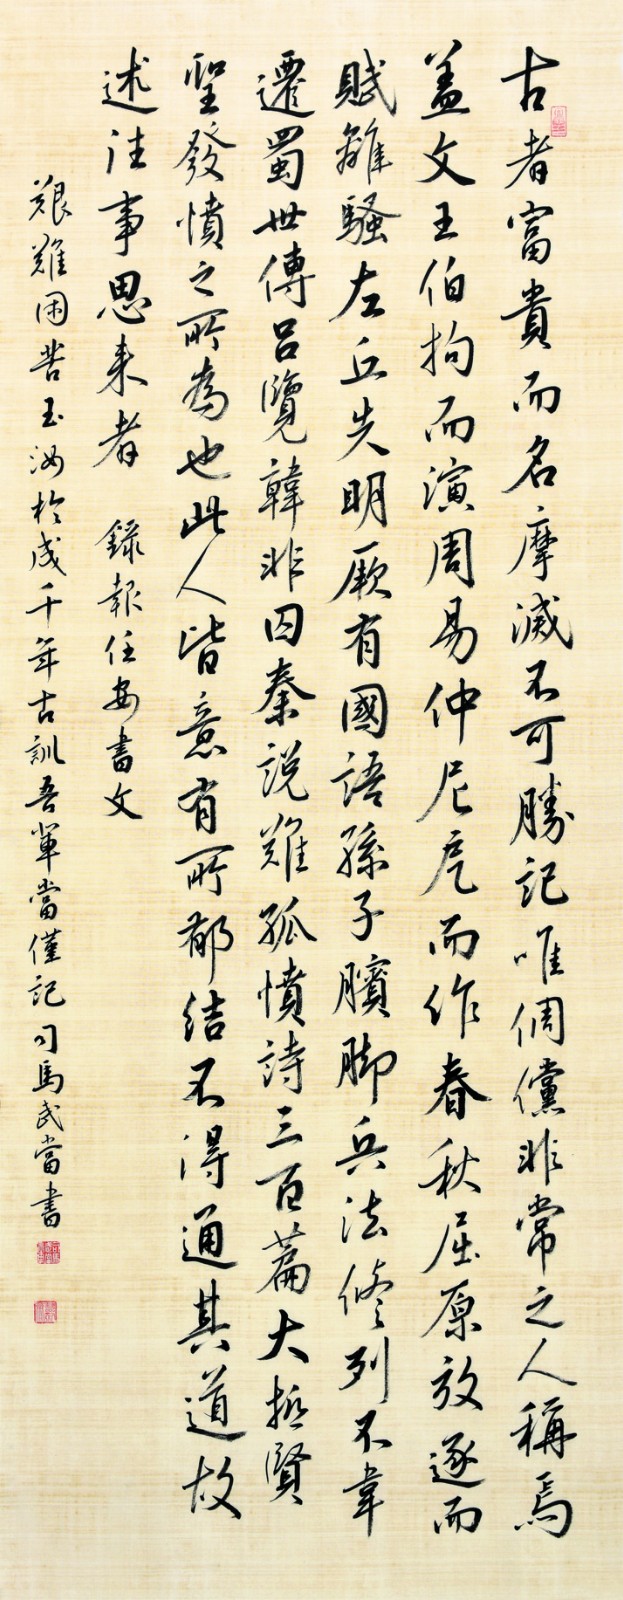 古者富貴而名摩滅不可勝記唯倜儻非常之人稱焉
盖文王伯拘而演周易仲尼戹而作春秋屈原放逐而
賦離騷左丘失明厥有國語孫子臏脚兵法修列不韋
遷蜀世傳呂覽韓非囚秦說難孤憤詩三百篇大抵賢
聖發憤之所為也此人皆意有所郁結不得通其道故
述往事思来者 錄報任安書文
艱難困苦玉汝於成千年古訓吾輩當僅記司馬武當書